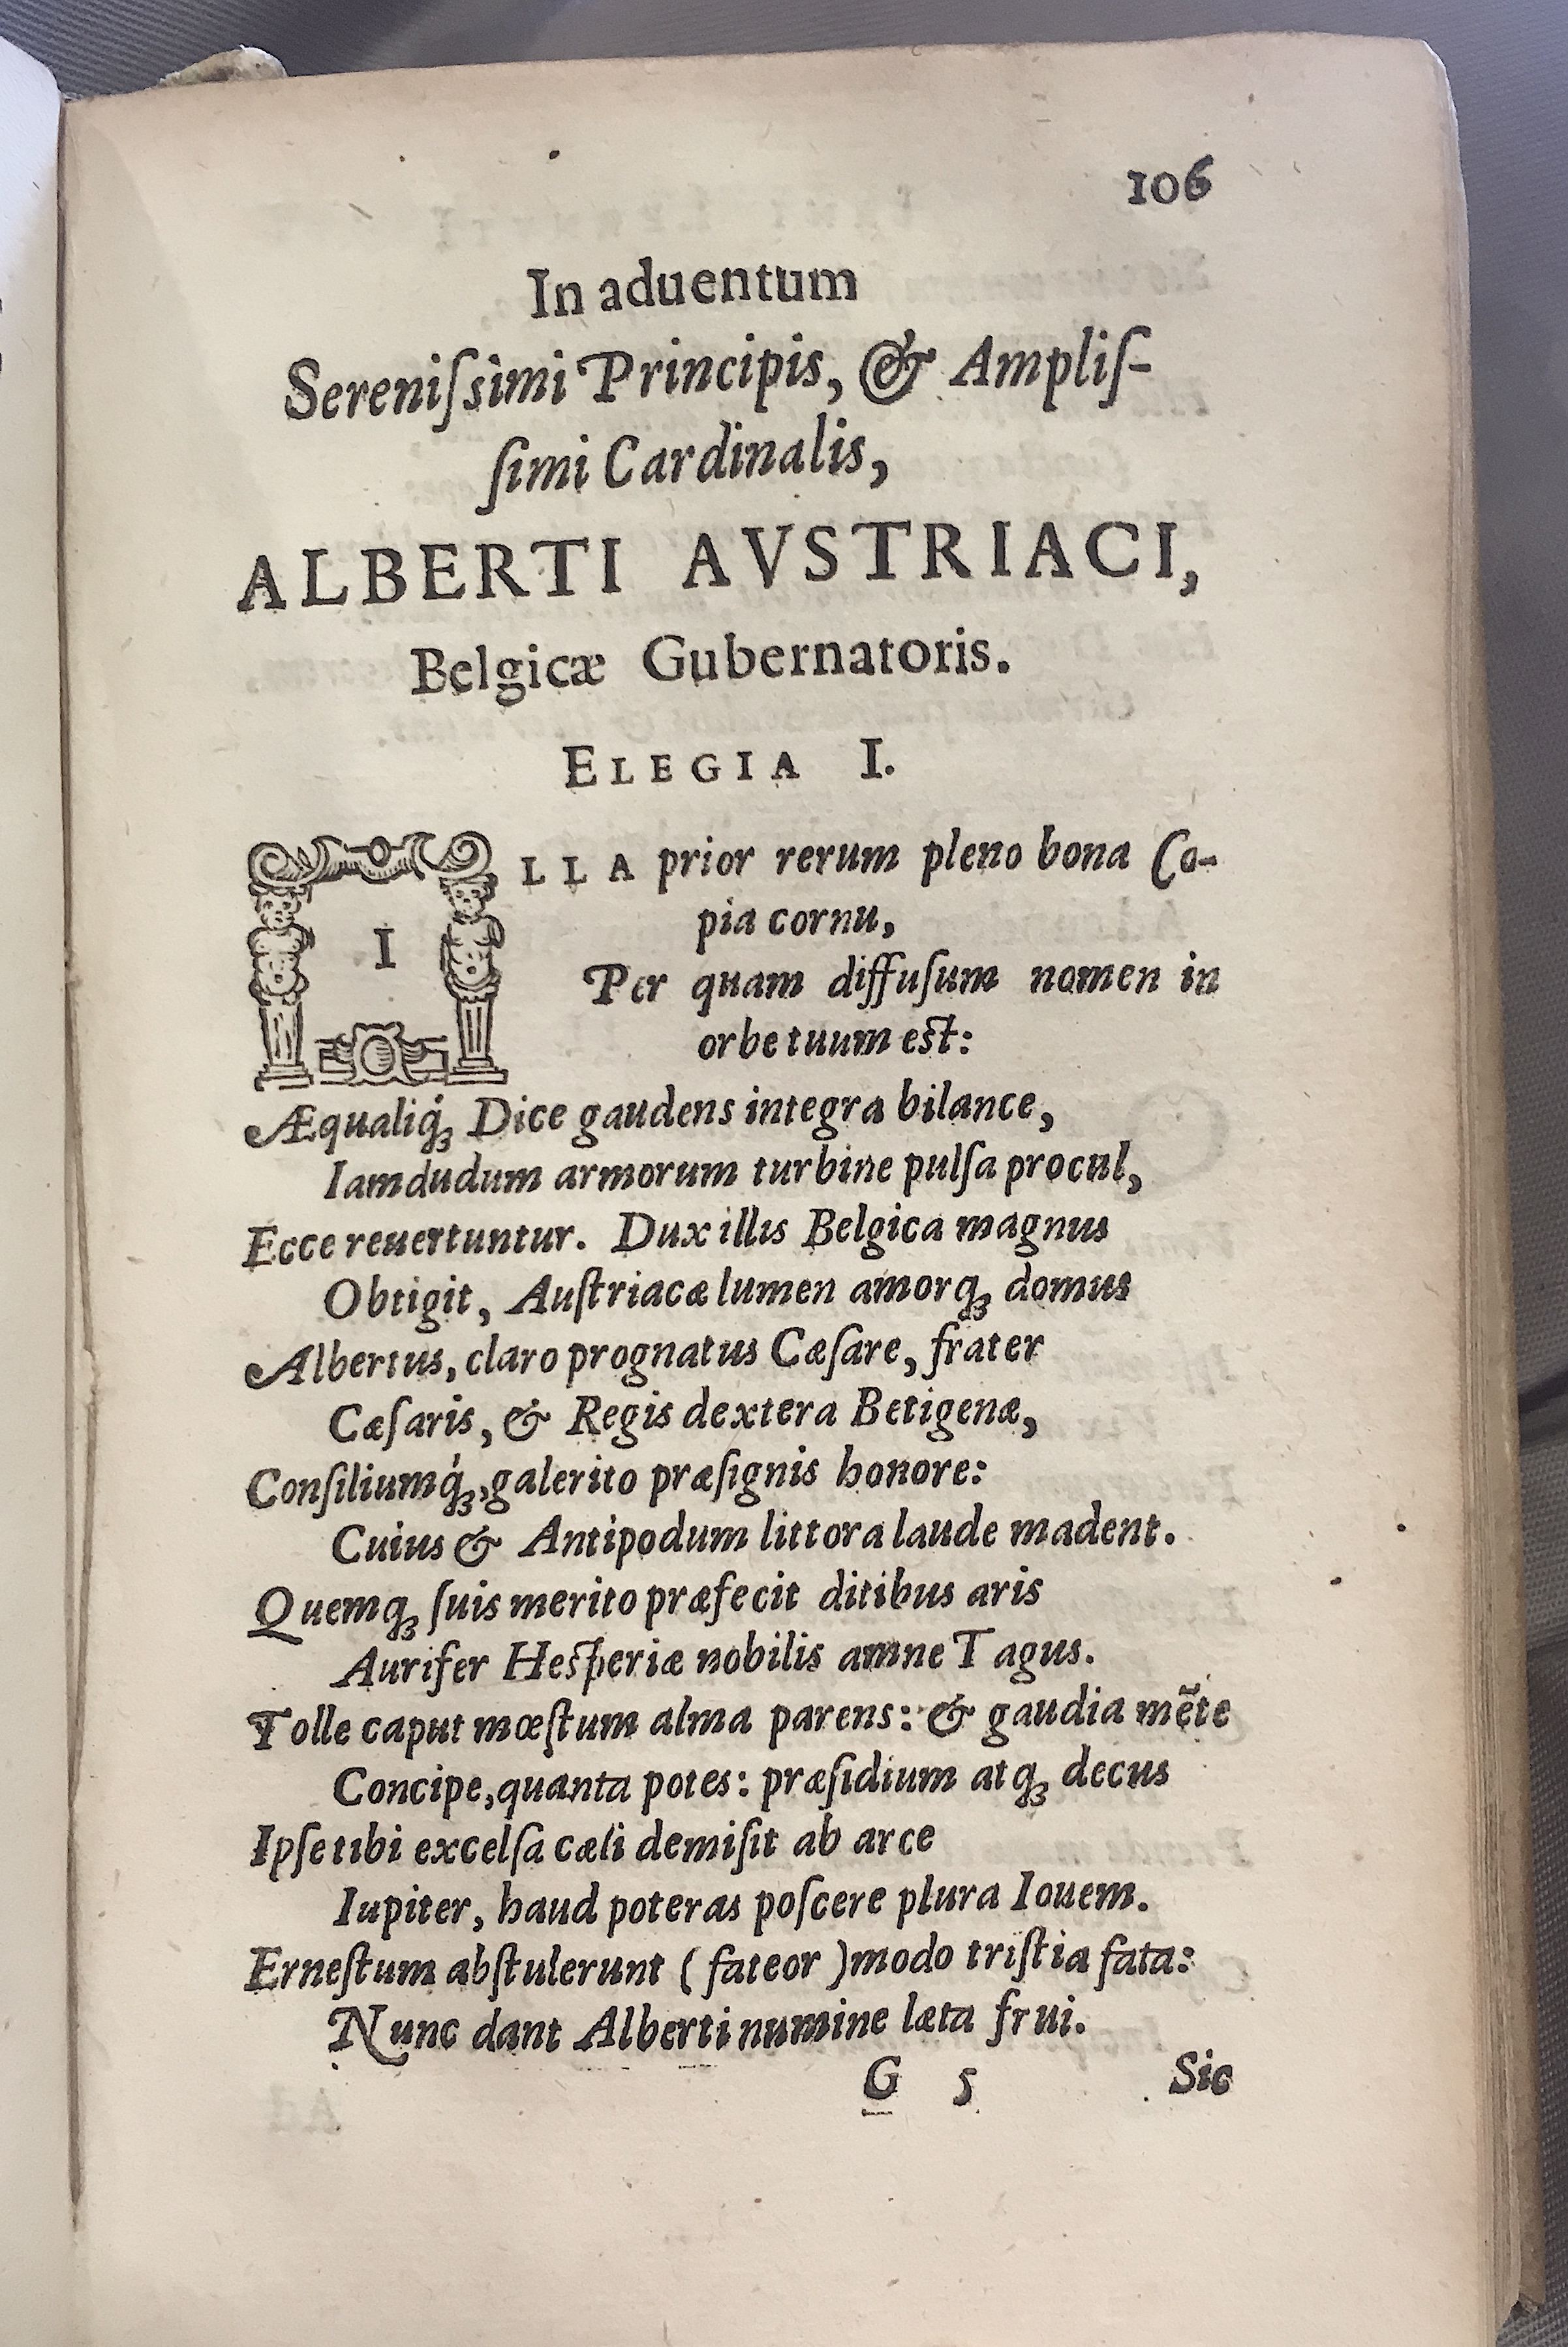 106
In aduentum
Sereniſsimi Principis, & Ampliſ-
ſimi Cardinalis,
ALBERTI AVSTRIACI,
Belgicæ Gubernatoris.
ELEGIA I.
ILLA prior rerum pleno bona Co-
pia cornu,
Per quam diffuſum nomen in
orbe tuum est:
Æqualiq́ꝫ Dice gaudens integra bilance,
Iamdudum armorum turbine pulſa procul,
Ecce reuertuntur. Dux illis Belgica magnus
Obtigit, Auſtriacæ lumen amorqꝫ domus
Albertus, claro prognatus Cæſare, frater
Cæſaris, & Regis dextera Betigenæ,
Conſiliumq́ꝫ, galerito præſignis honore:
Cuius & Antipodum littora laude madent.
Quemqꝫ ſuis merito præfecit ditibus aris
Aurifer Hesperiæ nobilis amne Tagus.
Tolle caput mœſtum alma parens: & gaudia mẽte
Concipe, quanta potes: præſidium atqꝫ decus
Ipſe tibi excelſa cæli demiſit ab arce
Iupiter, haud poteras poſcere plura Iouem.
Erneſtum abſtulerunt (fateor) modo triſtia fata:
Nunc dant Alberti numine læta frui.
G 5 Sic